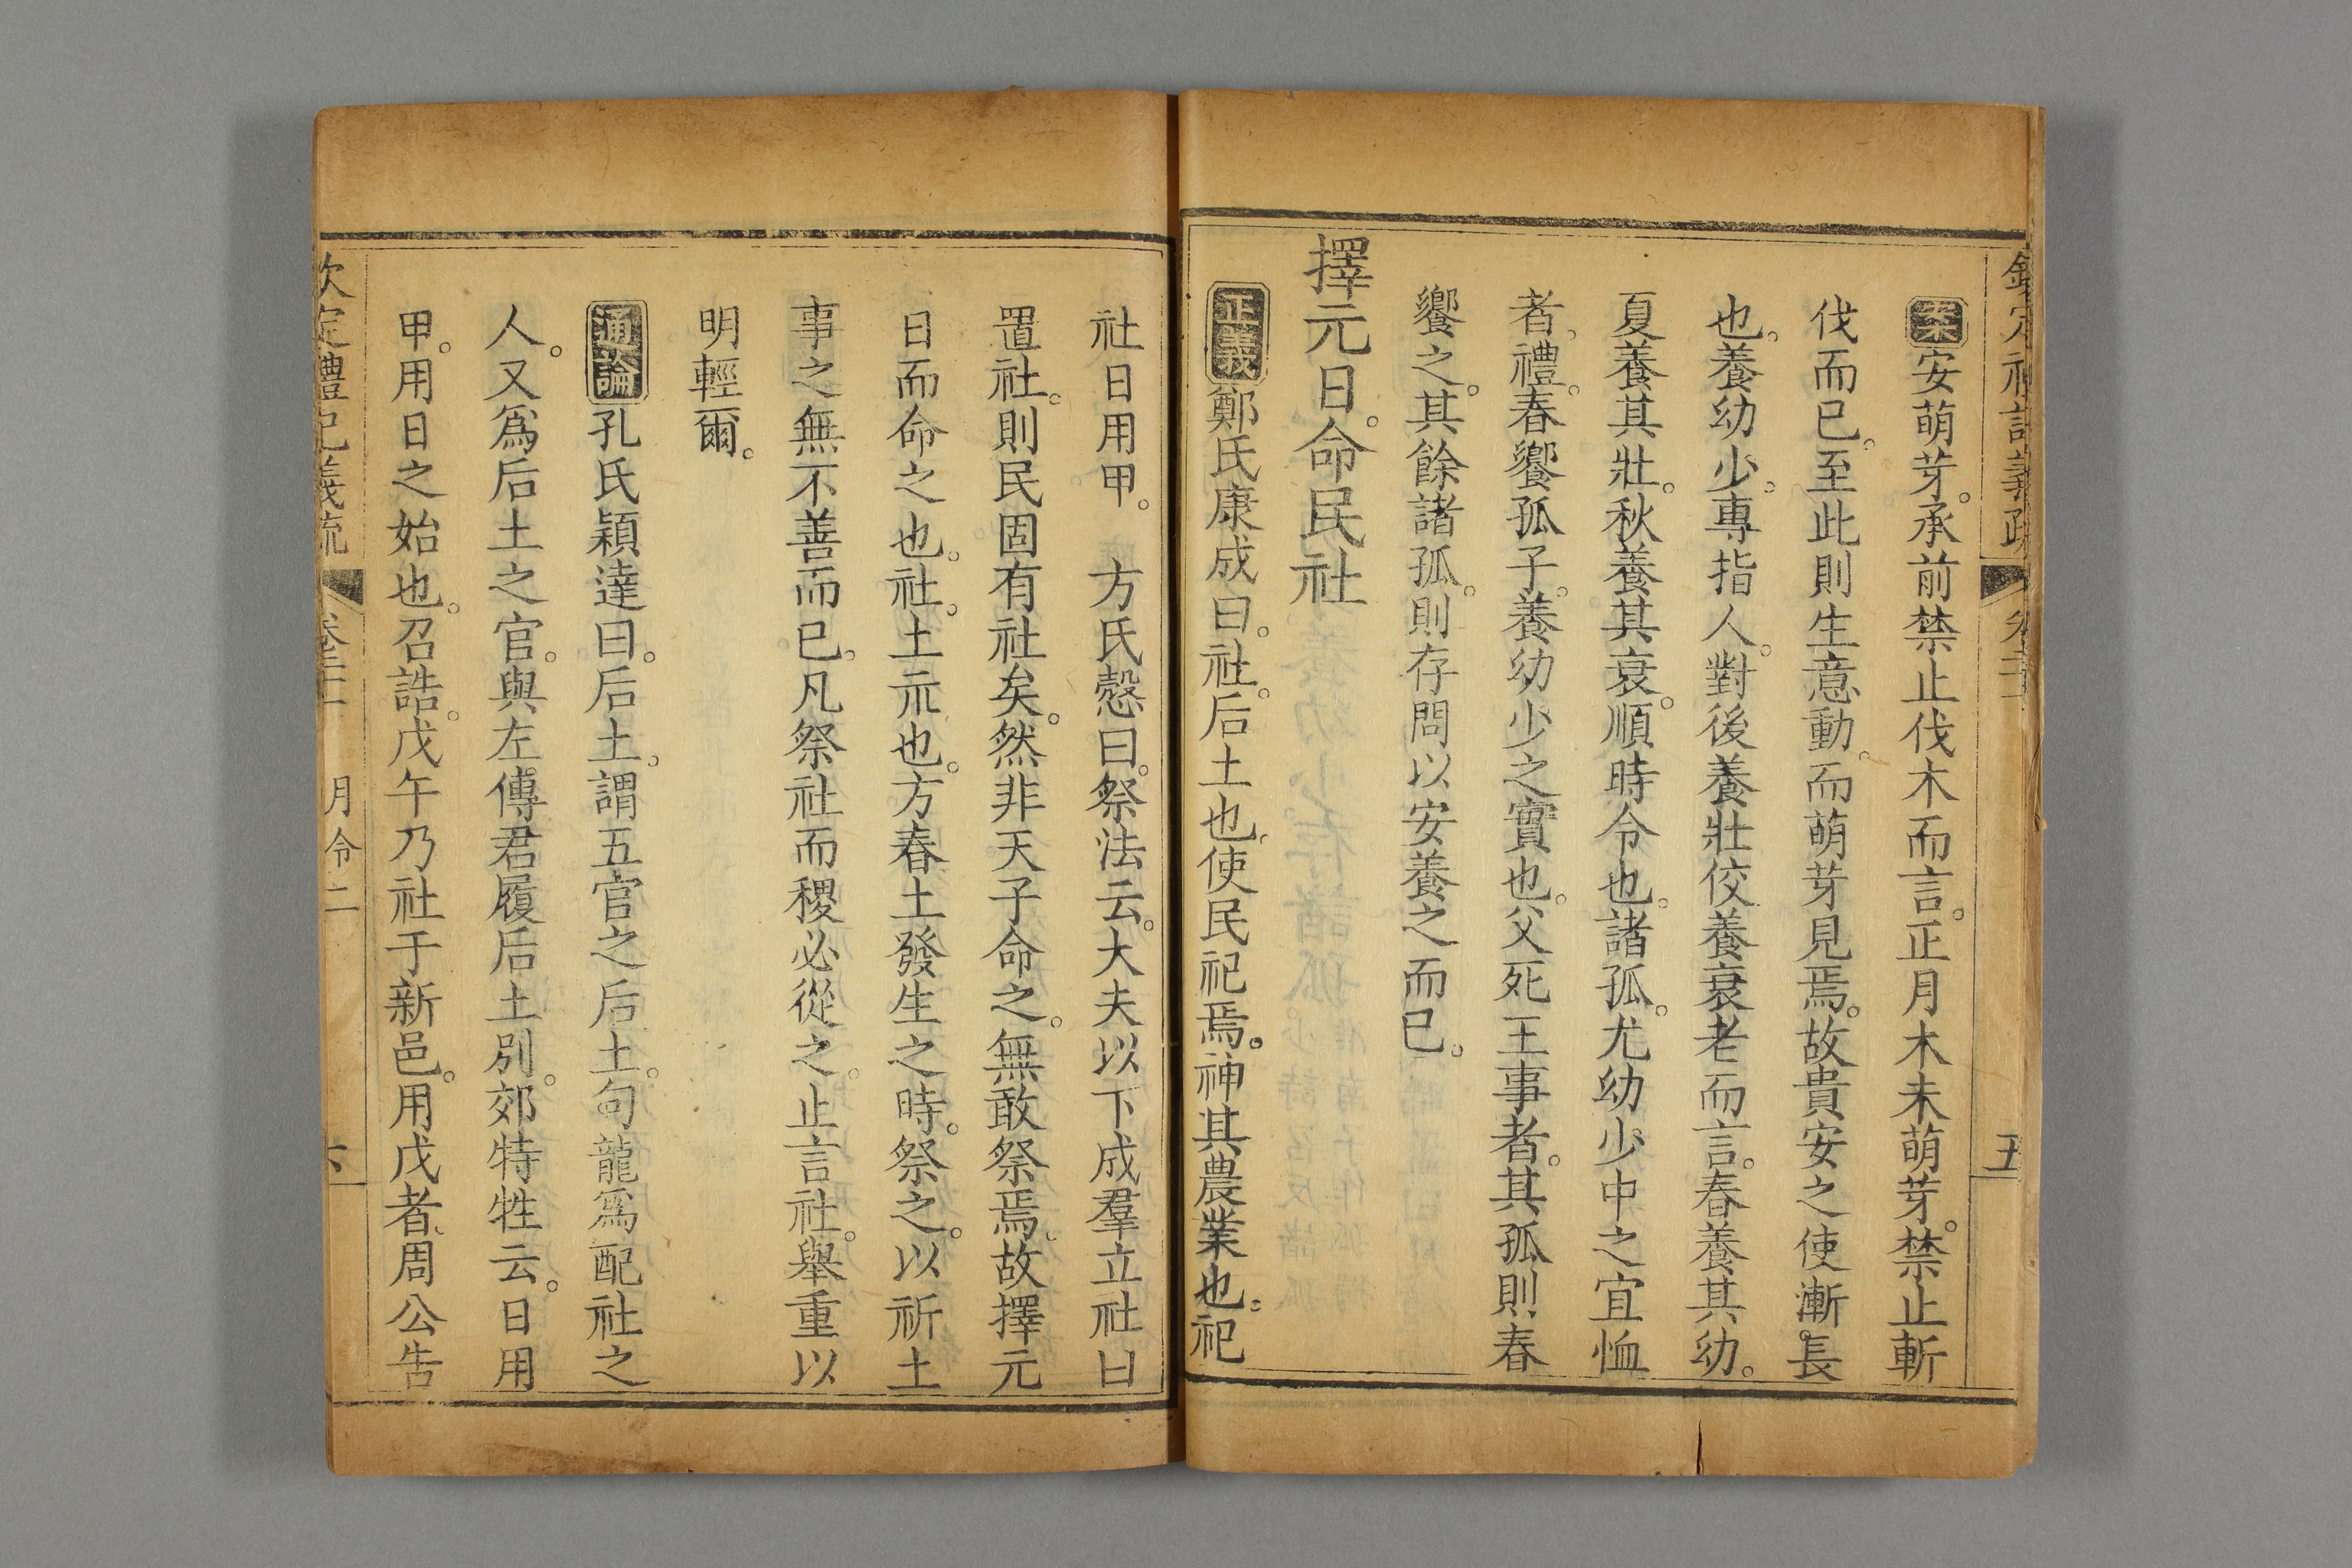 欽定禮記義疏 卷二十 五
案安萌芽。承前禁止伐木而言。正月木未萌芽。禁止斬
伐而已。至此則生意動。而萌芽見焉。故貴安之使漸長
也。養幼少。專指人。對後養壯佼養衰老而言。春養其幼。
夏養其壯。秋養其衰。順時令也。諸孤。尤幼少中之宜恤
者。禮。春饗孤子。養幼少之實也。父死王事者。其孤則春
饗之。其餘諸孤。則存問以安養之而已。
擇元日。命民社
正義鄭氏康成曰。社。后土也。使民祀焉。神其農業也。祀
社日用甲。 方氏慤曰。祭法云。大夫以下成羣立社曰
置社。則民固有社矣。然非天子命之。無敢祭焉。故擇元
日而命之也。社。土示也。方春土發生之時。祭之。以祈土
事之無不善而已。凡祭社而稷必從之。止言社。舉重以
明輕爾。
通論孔氏穎達曰。后土。謂五官之后土。句龍爲配社之
人。又爲后土之官。與左傳君履后土別。郊特牲云。日用
甲。用日之始也。召誥。戊午乃社于新邑。用戊者。周公告
欽定禮記義疏 卷二十 月令二 六